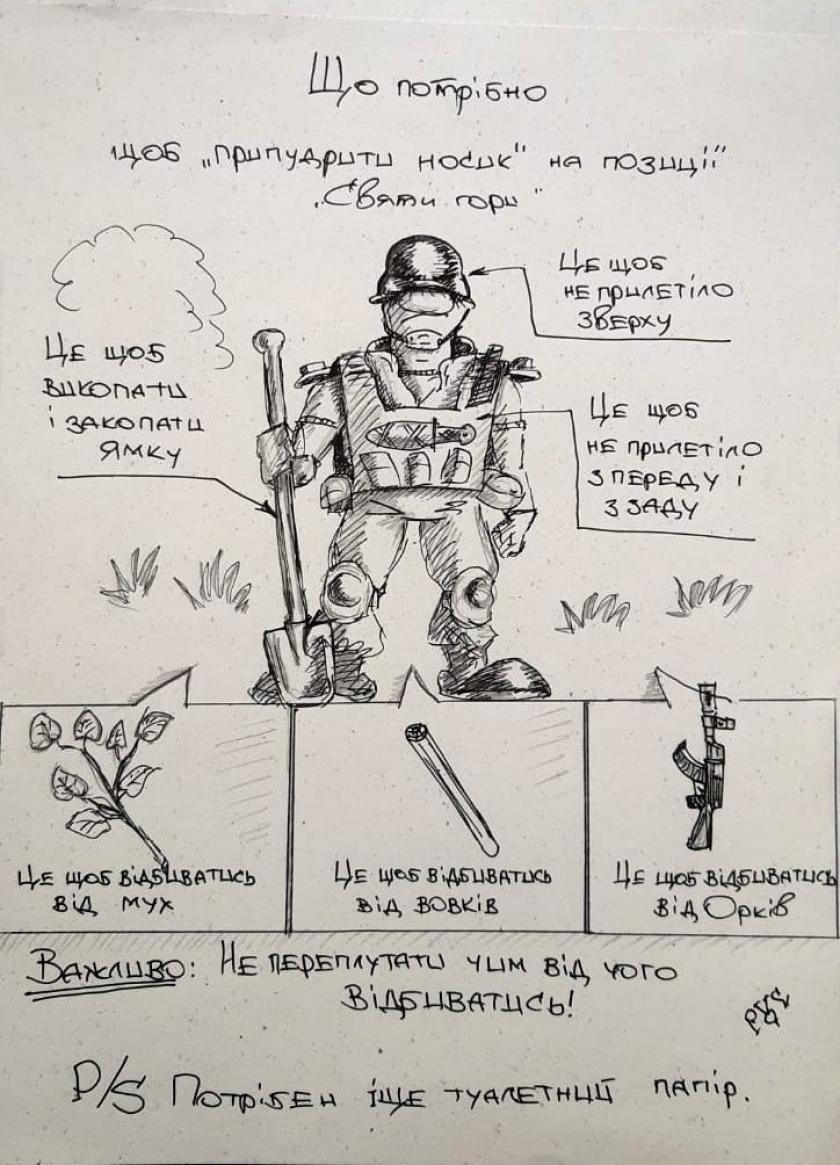 Що потрібно
щоб „припудрити носик" на позиції
„Святі гори"
Це щоб
не прилетіло
зверху
Це щоб
викопати
і закопати
ямку
Це щоб
не прилетіло
з переду і
з заду
Це щоб відбиватись
від мух
Це щоб відбиватись
від вовків
Це щоб відбиватись
від Орків
Важливо: Не переплутати чим від чого
відбиватись!
P/S Потрібен іще туалетний папір.